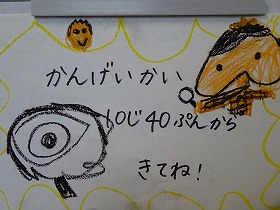 かんげいかい
10じ40ぷんから
きてね!